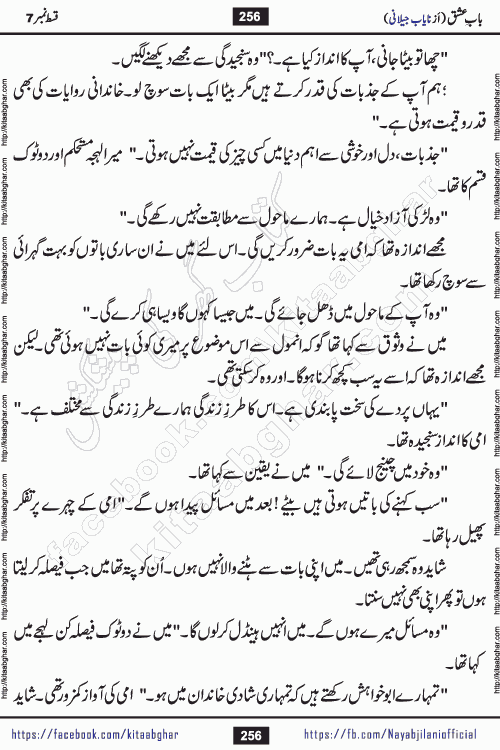 باب عشق (از نایاب جیلانی)
256
قسط نمبر 7
"چھا تو بیٹا جانی، آپ کا انداز کیا ہے۔؟" وہ سنجیدگی سے مجھے دیکھنے لگیں۔
؛ہم آپ کے جذبات کی قدر کرتے ہیں مگر بیٹا ایک بات سوچ لو۔ خاندانی روایات کی بھی
قدر و قیمت ہوتی ہے۔"
"جذبات، دل اور خوشی سے اہم دنیا میں کسی چیز کی قیمت نہیں ہوتی۔" میرا لہجہ مستحکم اور دو ٹوک
قسم کا تھا۔
"وہ لڑکی آزاد خیال ہے۔ ہمارے ماحول سے مطابقت نہیں رکھے گی۔"
مجھے اندازہ تھا کہ امی یہ بات ضرور کریں گی۔ اس لئے میں نے ان ساری باتوں کو بہت گہرائی
سے سوچ رکھا تھا۔
"وہ آپ کے ماحول میں ڈھل جائے گی۔ میں جیسا کہوں گا ویسا ہی کرے گی۔"
میں نے وثوق سے کہا تھا گو کہ انمول سے اس موضوع پر میری کوئی بات نہیں ہوئی تھی۔ لیکن
مجھے اندازہ تھا کہ اسے یہ سب کچھ کرنا ہو گا۔ اور وہ کر سکتی تھی۔
"یہاں پردے کی سخت پابندی ہے۔ اس کا طرزِ زندگی ہمارے طرزِ زندگی سے مختلف ہے۔"
امی کا انداز سنجیدہ تھا۔
"وہ خود میں چینج لائے گی۔" میں نے یقین سے کہا تھا۔
"سب کہنے کی باتیں ہوتی ہیں بیٹے! بعد میں مسائل پیدا ہوں گے۔" امی کے چہرے پر تفکر
پھیل رہا تھا۔
شاید وہ سمجھ رہی تھیں۔ میں اپنی بات سے ہٹنے والا نہیں ہوں۔ اُن کو پتہ تھا میں جب فیصلہ کر لیتا
ہوں تو پھر اپنی بھی نہیں سنتا۔
"وہ مسائل میرے ہوں گے۔ میں انہیں ہینڈل کر لوں گا۔" میں نے دو ٹوک فیصلہ کن لہجے میں
کہا تھا۔
"تمہارے ابو خواہش رکھتے ہیں کہ تمہاری شادی خاندان میں ہو۔" امی کی آواز کمزور تھی۔ شاید
https://facebook.com/kitaabghar
256
https://fb.com/Nayabjilaniofficial
http://kitaabghar.com
کتاب گھر کی پیشکش
facebook.com/kitaabghar
kitaabghar.com